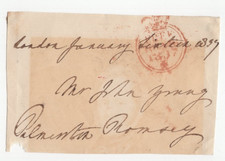 London January Sixteen 1837
Mr John Young
Romsey
Palmerston